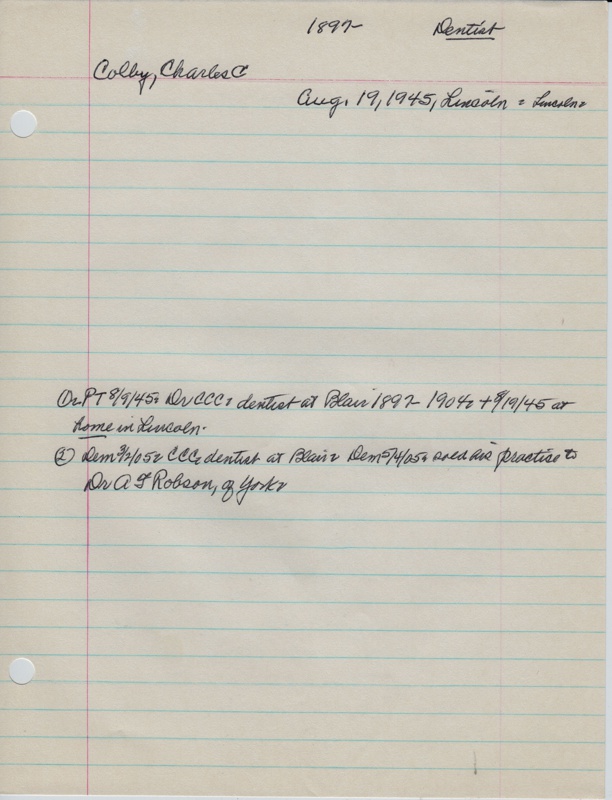 1897- Dentist
Colby, Charles C
Aug. 19, 1945, Lincoln = Lincoln=
① PT 8/9/45: Dr CCC= dentist at Blair 1897- 1904: + 8/19/45 at
home in Lincoln.
② Dem 3/2/05= CCC= dentist at Blair= Dem 5/4/05= sold his practise to
Dr A F Robson, of York=